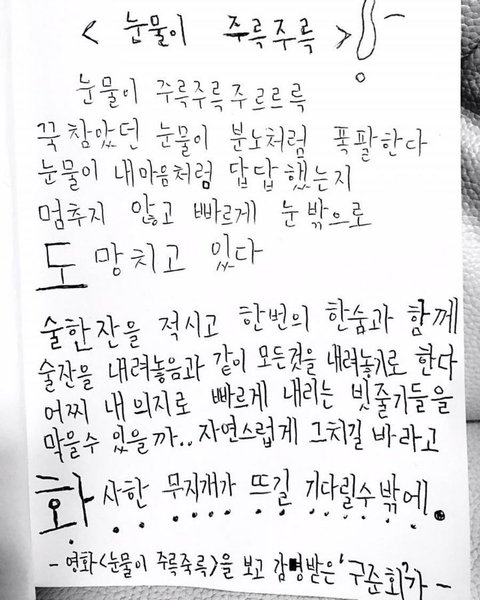 < 눈물이 주륵주륵 >
눈물이 주륵주륵주르르륵
꾹참았던 눈물이 분노처럼 폭팔한다
눈물이 내마음처럼 답답했는지
멈추지 않고 빠르게 눈밖으로
도망치고 있다
술한잔을 적시고 한번의 한숨과 함께
술잔을 내려놓음과 같이 모든것을 내려놓기로 한다
어찌 내의지로 빠르게 내리는 빗줄기들을
막을수 있을까.. 자연스럽게 그치길 바라고
화사한 무지개가 뜨길 기다릴수밖에.
- 영화<눈물이 주륵주륵>을 보고 감명받은 '구준회'가 -